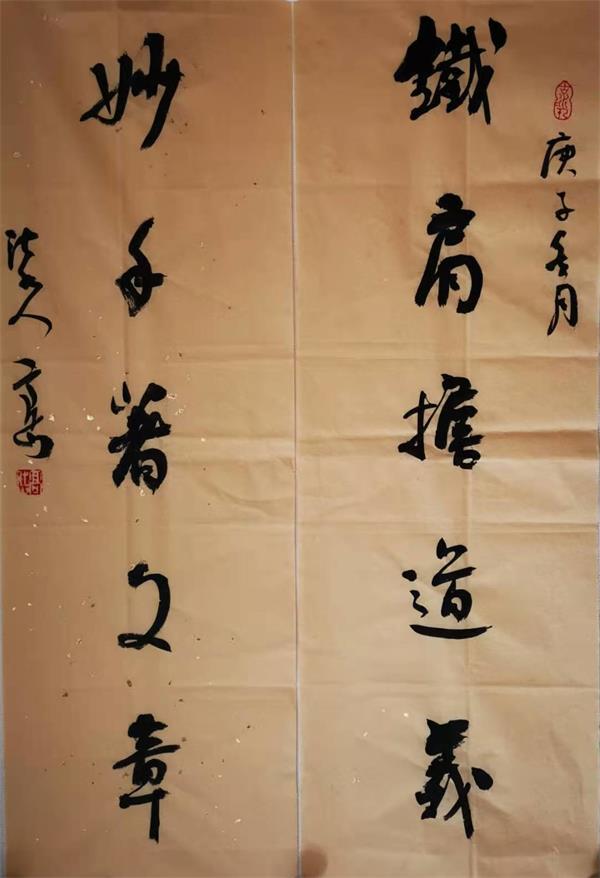 庚子冬月
鐵肩擔道義
妙手著文章